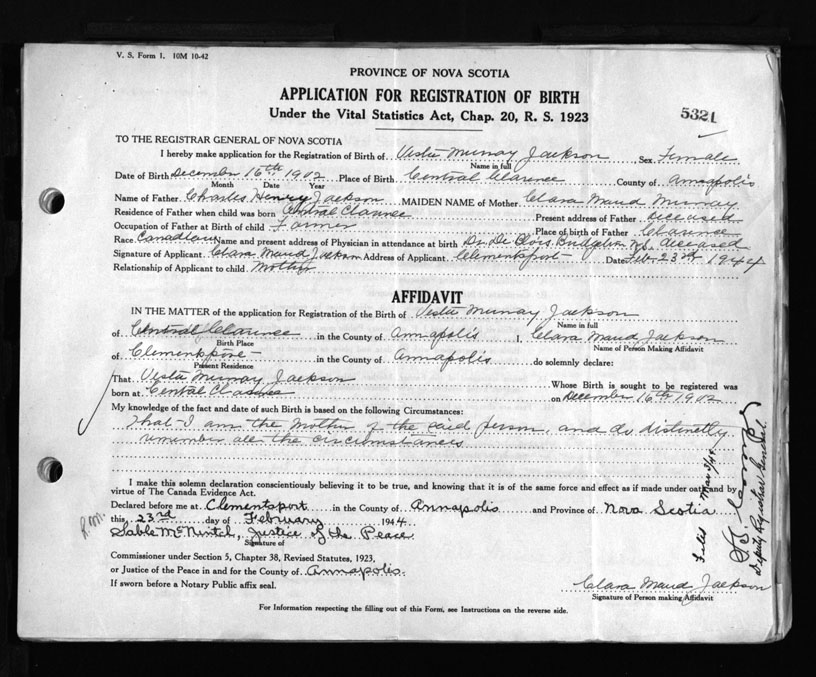 V. S. Form 1. 10M 10-42
PROVINCE OF NOVA SCOTIA
APPLICATION FOR REGISTRATION OF BIRTH
Under the Vital Statistics Act, Chap. 20, R. S. 1923
5321
TO THE REGISTRAR GENERAL OF NOVA SCOTIA
I hereby make application for the Registration of Birth of Vesta Murray Jackson, Sex Female
Name in full
Date of Birth December 16th 1902 Place of Birth Central Clarence County of Annapolis
Month Date Year
Name of Father Charles Henry Jackson MAIDEN NAME of Mother Clara Maud Murray
Residence of Father when child was born Central Clarence Present address of Father deceased
Occupation of Father at Birth of child Farmer Place of birth of Father Clarence
Race Canadian Name and present address of Physician in attendance at birth Dr. De Blois. N.S. deceased
Signature of Applicant Clara Maud Jackson Address of Applicant Clementsport Date Feb. 23rd 1944
Relationship of Applicant to child Mother
AFFIDAVIT
IN THE MATTER of the application for Registration of the Birth of Vesta Murray Jackson
Name in full
of Central Clarence in the County of Annapolis I, Clara Maud Jackson
Birth Place Name of Person Making Affidavit
of in the County of Annapolis do solemnly declare:
Present Residence
That Vesta Murray Jackson Whose Birth is sought to be registered was
born at Central on December 16th 1902
My knowledge of the fact and date of such Birth is based on the following Circumstances:
That I am the Mother of the said person, and do distinctly
remember all the circumstances
I make this solemn declaration conscientiously believing it to be true, and knowing that it is of the same force and effect as if made under oath and by
virtue of The Canada Evidence Act.
Declared before me at Clementsport in the County of Annapolis and Province of Nova Scotia
this 23rd day of February 1944
Justice of the Peace
Signature of
Commissioner under Section 5, Chapter 38, Revised Statutes, 1923,
or Justice of the Peace in and for the County of Annapolis.
If sworn before a Notary Public affix seal.
Clara Maud Jackson
Signature of Person making Affidavit
For Information respecting the filling out of this Form, see Instructions on the reverse side.
Deputy Registrar General.